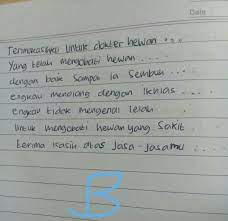 Date
Terimakasihku Untuk dokter hewan ...
Yang telah mengobati hewan ....
dengan baik Sampai ia Sembuh ....
engkau menolong dengan Ikhlas ....
engkau tidak mengenal lelah
Untuk mengobati hewan yang Sakit .
terima kasih atas Jasa-Jasamu ....
B